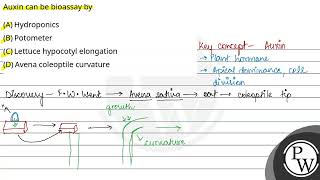 Auxin can be bioassay by
(A) Hydroponics
(B) Potometer
(C) Lettuce hypocotyl elongation
(D) Avena coleoptile curvature
Key concept - Auxin
→ Plant hormone
→ Apical dominance, cell
division
Discovery - F. W. Went → Avena sativa → oat → coleoptile tip
growth
curvature
PW